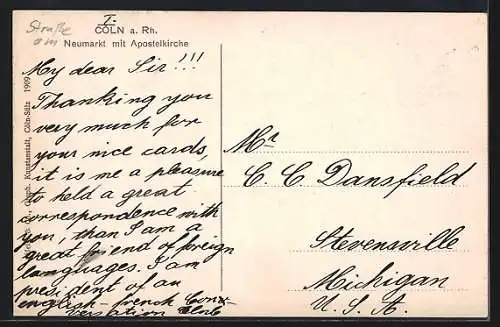 Straße
I.
CÖLN a. Rh.
Neumarkt mit Apostelkirche
My dear Sir!!!
Thanking you
very much for
your nice cards,
it is me a pleasure
to held a great
correspondence with
you, than I am a
great friend of foreign
languages. I am
president of an
english - french Con-
versation Club
Mr
C. C. Dansfield
Stevensville
Michigan
U. S. A.
Kunstanstalt, Cöln-Sülz 1909